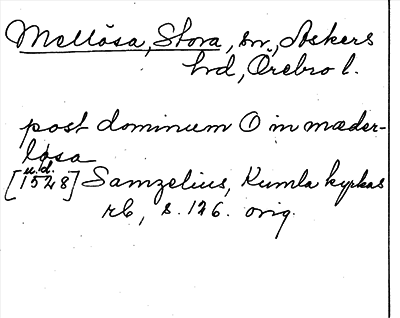 Mellösa, Stora, sn, Askers
hd, Örebro l.
post dominum O in mæder-
lösa
u.d.
[1528] Samzelius, Kumla kyrkas
rb, s. 126. orig.